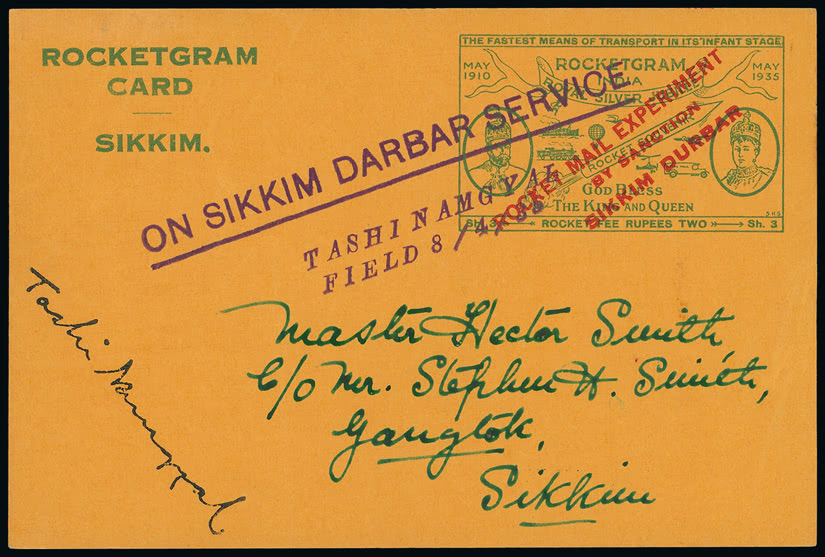 ROCKETGRAM
CARD
SIKKIM.
THE FASTEST MEANS OF TRANSPORT IN ITS INFANT STAGE.
MAY
1910
ROCKETGRAM
INDIA
SILVER
MAY
1935
ROCKET
GOD BLESS
THE KING AND QUEEN
SHS
Sh. 3 ROCKET FEE RUPEES TWO Sh. 3
ROCKET MAIL EXPERIMENT
BY SANCTION
SIKKIM DURBAR
ON SIKKIM DARBAR SERVICE
TASHI NAMGYAL
FIELD 8/4/35
Tashi Namgyal
Master Hector Smith
C/o Mr. Stephen H. Smith,
Gangtok,
Sikkim